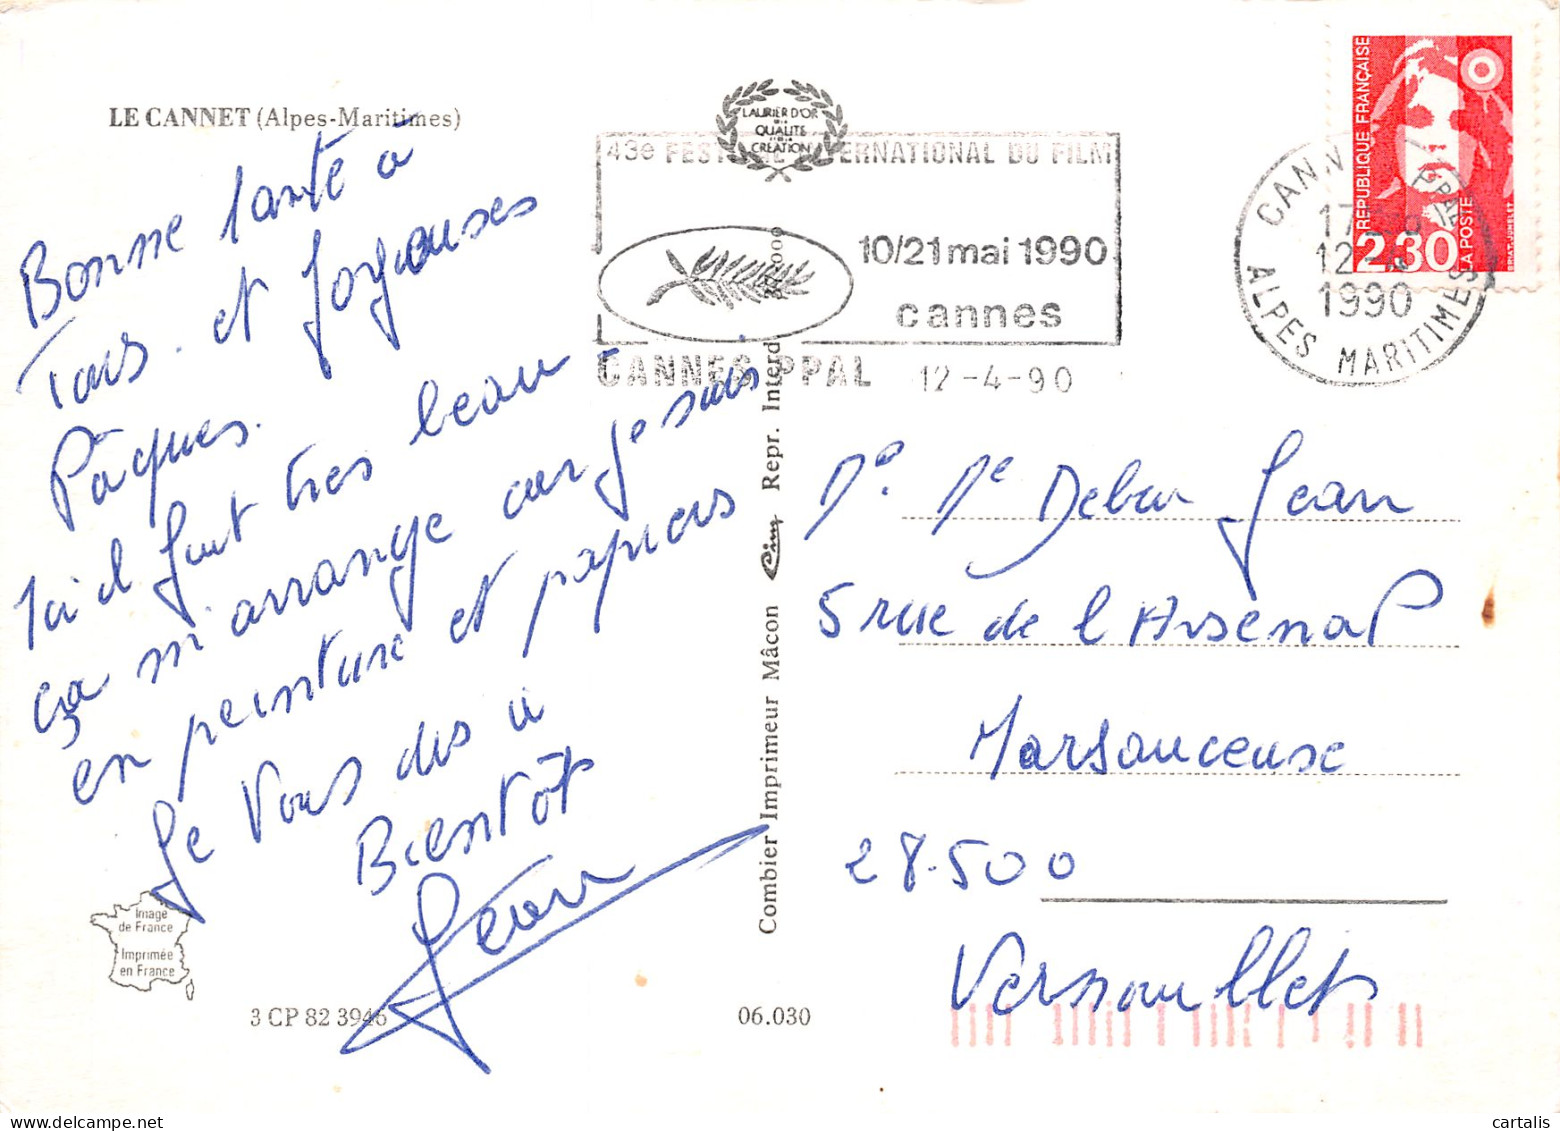 LE CANNET (Alpes-Maritimes)
Bonne santé à
Tous. et Joyeuses
Pâques.
Ici il fait très beau
ça m'arrange car je suis
en peinture et papiers
Je Vous dis à
Bientôt
Jean
Image
de France
Imprimée
en France
3 CP 82 3946
06.030
Combier Imprimeur Mâcon Cim Repr. Interd
LAURIER D'OR
QUALITE
CRÉATION
43e FESTIVAL INTERNATIONAL DU FILM
10/21 mai 1990
cannes
CANNES PPAL 12-4-90
CANNES PPAL
1990
ALPES MARITIMES
REPUBLIQUE FRANÇAISE
2,30
LA POSTE
Mr Me Jean
5 rue de l'Arsenal
Marsauceuse
28.500
Vernouillet
cartalis